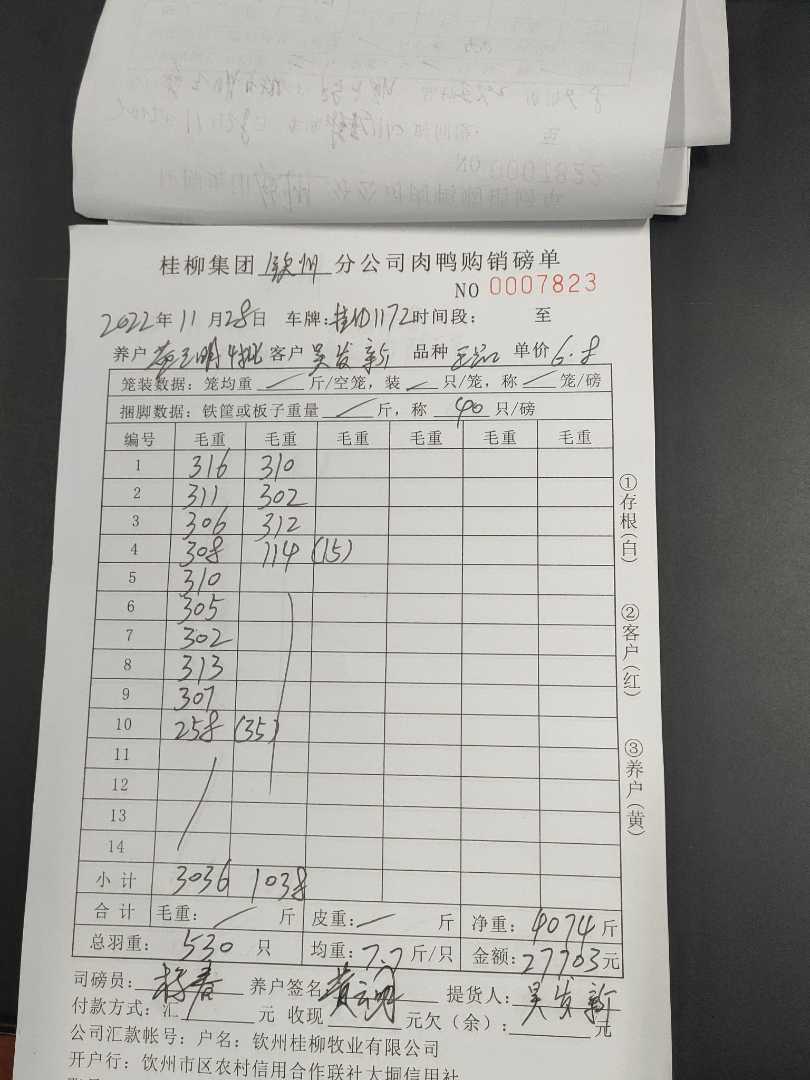 桂柳集团 钦州 分公司肉鸭购销磅单
NO 0007823
2022年11月28日 车牌: 1172 时间段: 至
养户 客户 吴发新 品种 单价 6.8
笼装数据: 笼均重 斤/空笼, 装 只/笼, 称 笼/磅
捆脚数据: 铁筐或板子重量 斤, 称 40 只/磅
编号 毛重 毛重 毛重 毛重 毛重 毛重
1 316 310
2 311 302
3 306 312
4 308 114 (15)
5 310
6 305
7 302
8 313
9 307
10 258 (35)
11
12
13
14
小计 3036 1038
合计 毛重: 斤 皮重: 斤 净重: 4074 斤
总羽重: 530 只 均重: 7.7 斤/只 金额: 27703 元
司磅员: 养户签名 提货人: 吴发新
付款方式: 汇 元 收现 元欠(余): 元
公司汇款帐号: 户名: 钦州桂柳牧业有限公司
开户行: 钦州市区农村信用合作联社大垌信用社
①存根(白)
②客户(红)
③养户(黄)